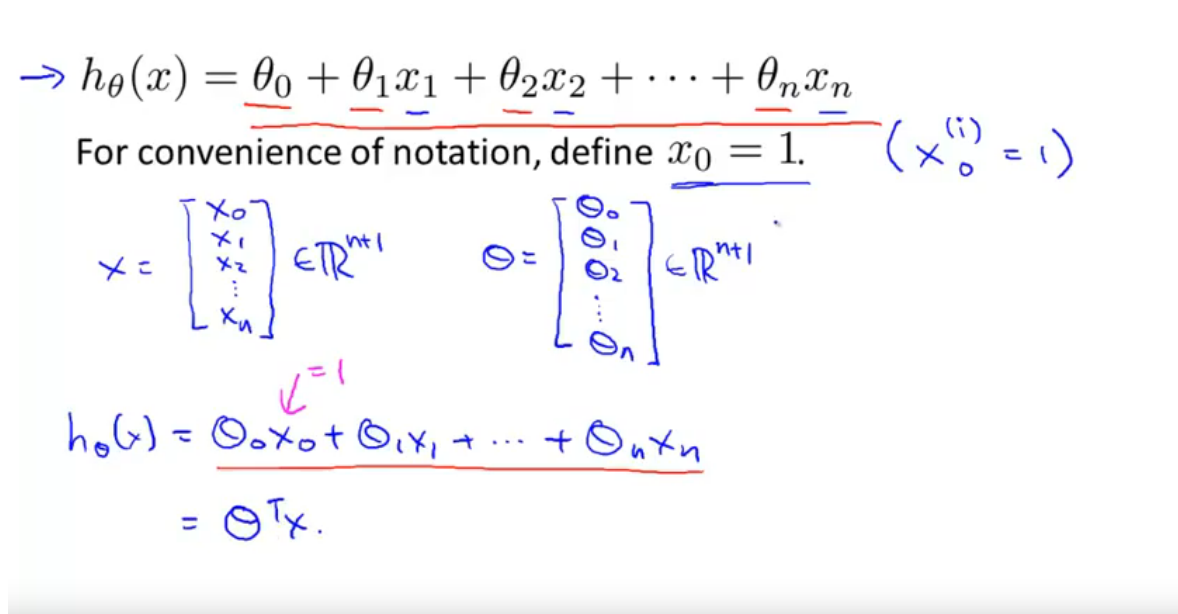 → hθ(x) = θ₀ + θ₁x₁ + θ₂x₂ + ··· + θₙxₙ
For convenience of notation, define x₀ = 1. (x₀⁽ⁱ⁾ = 1)
x = [x₀ x₁ x₂ ⋮ xₙ] ∈ ℝⁿ⁺¹ θ = [θ₀ θ₁ θ₂ ⋮ θₙ] ∈ ℝⁿ⁺¹
= 1
hθ(x) = θ₀x₀ + θ₁x₁ + ··· + θₙxₙ
= θᵀx.